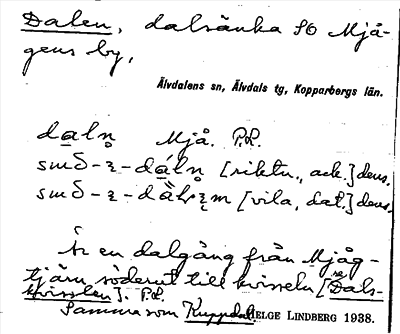 Dalen, dalsänka SO Mjå-
gens by,
Älvdalens sn, Älvdals tg, Kopparbergs län.
daln̥ Mjå. P.L.
suð-ɿ-dáln̥ [riktn., ack.] dens.
suð-ɿ- [vila, dat.] dens.
Är en dalgång från Mjåg-
tjärn söderut till kvisseln [se Dals-
kvisslen]. P.L.
Samma som HELGE LINDBERG 1938.